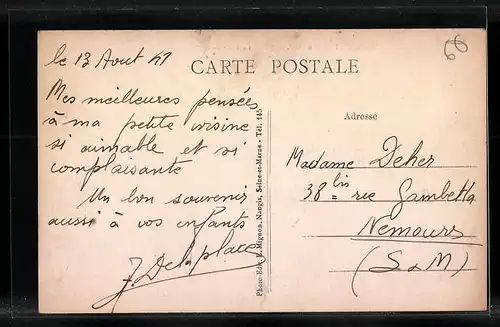 le 13 Aout 41
CARTE POSTALE
Mes meilleures pensées
à ma petite voisine
si aimable et si
complaisante
Un bon souvenir
aussi à vos enfants
J. Delaplace
Photo-Edit. E. Mignon, Nangis, Seine-et-Marne - Tél. 145
Adresse
Madame Deher
38 bis rue Gambetta
Nemours
(S & M)